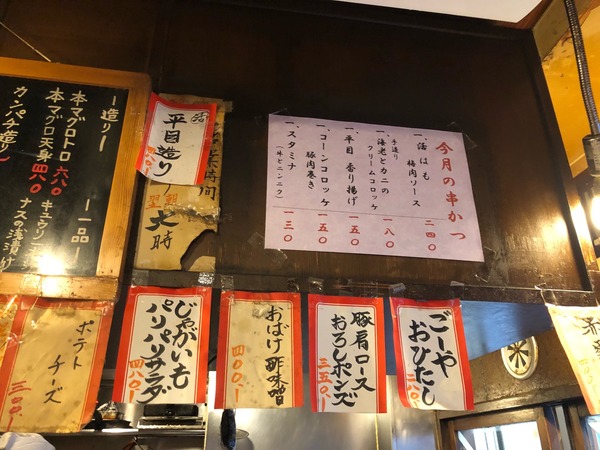 今月の串かつ
一、活はも 梅肉ソース 二四〇
一、手造り 海老とカニの クリームコロッケ 一八〇
一、平目 香り揚げ 一五〇
一、コーンコロッケ 豚肉巻き 一五〇
一、スタミナ (牛とニンニク) 一三〇
ー造りー
本マグロトロ 六八〇
本マグロ天身 四八〇
カンパチ造り
ー一品ー
キュウリ
ナスの浅漬け
活
平目造り
時間
大時
ごーや
おひたし
豚肩ロース
おろしポンズ
三五〇.ー
おばけ酢味噌
四〇〇.ー
じゃがいも
パリパリサラダ
四八〇.ー
ポテト
チーズ
三〇〇.ー